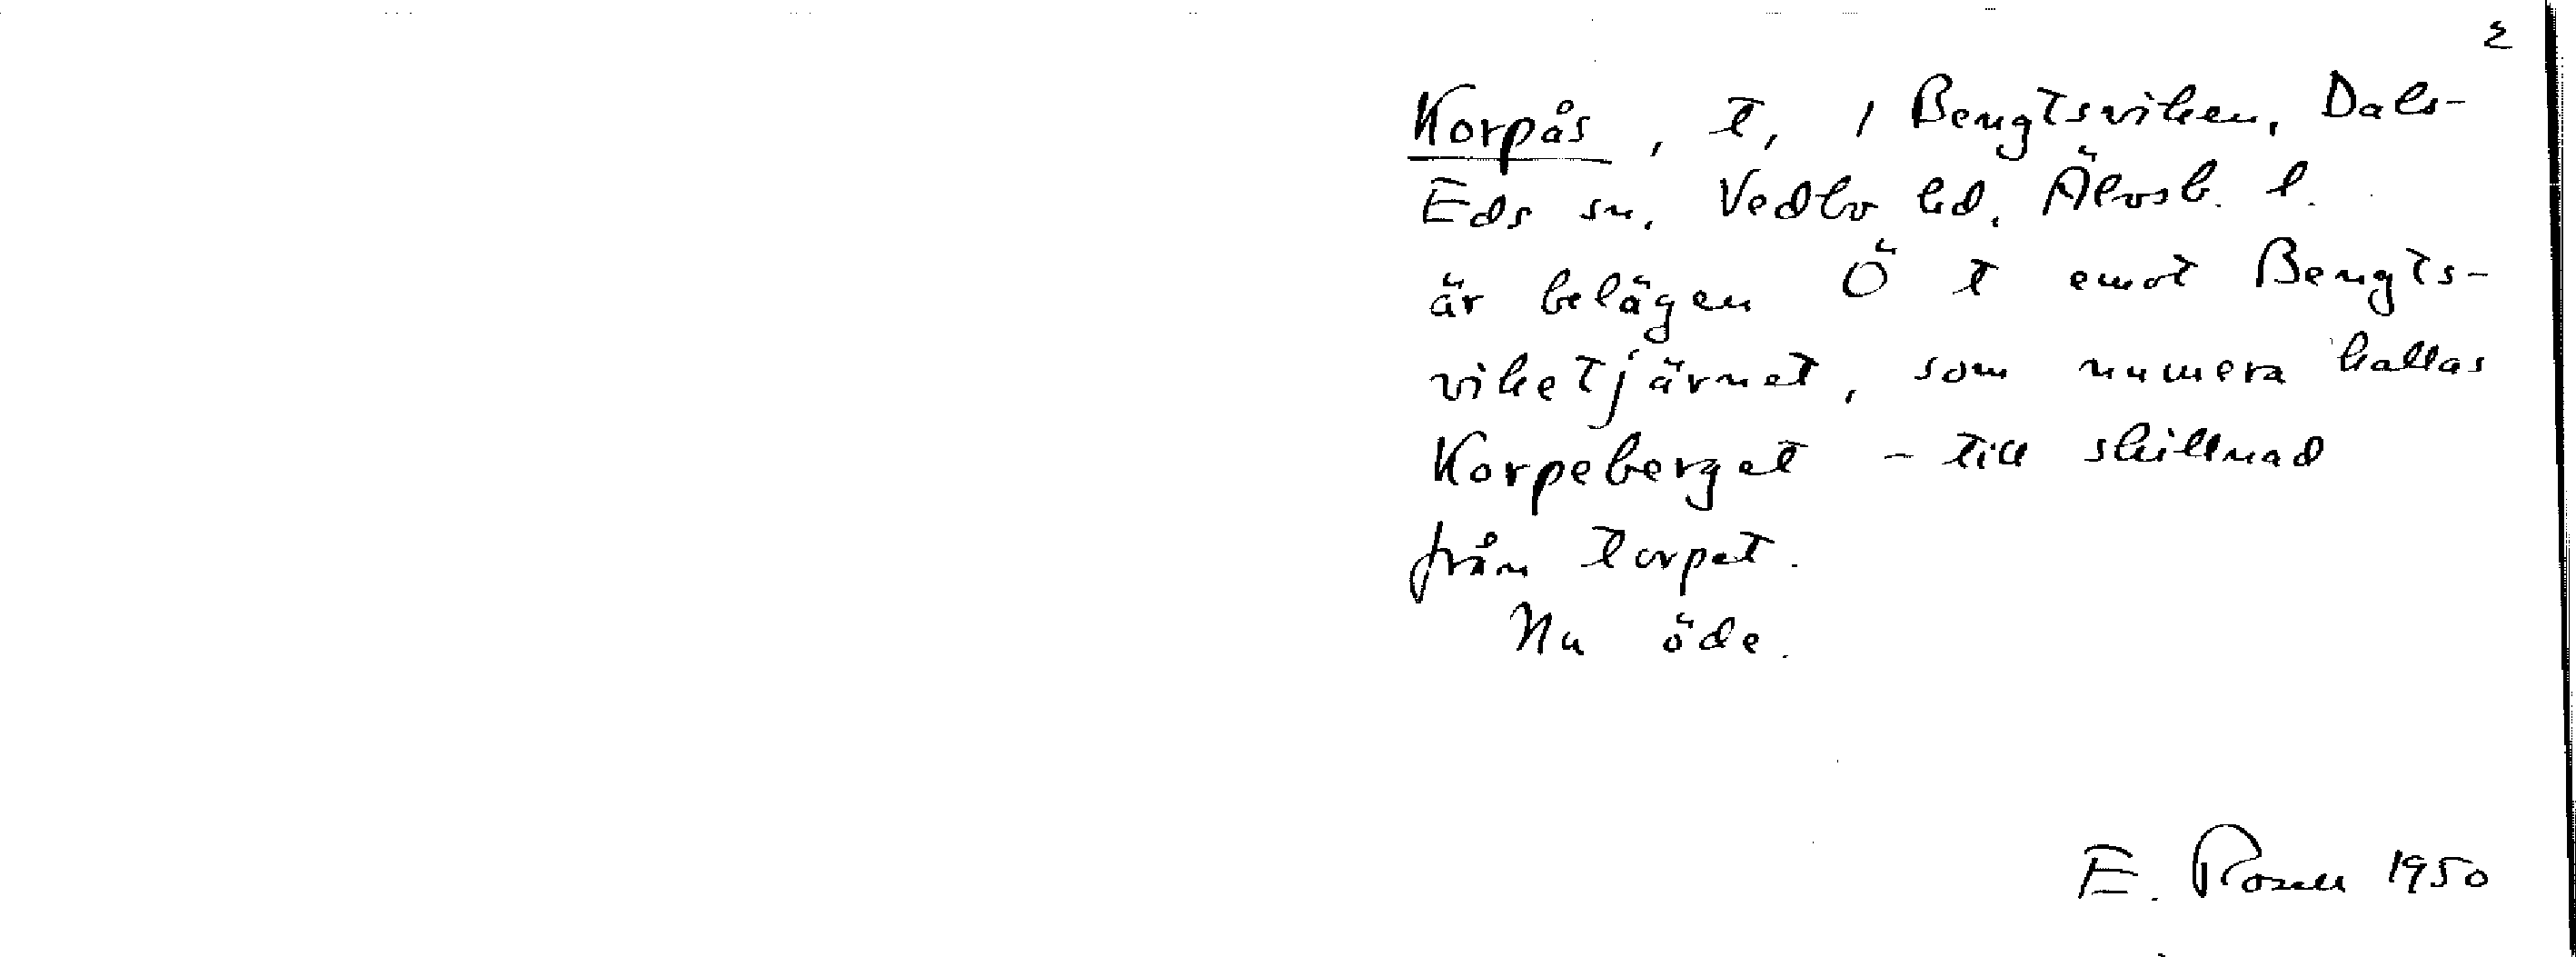 2
Korpås, t, / Bengtsviken, Dals-
Eds sn. Vedbo hd. Älvsb. l.
är belägen Ö t emot Bengts-
viketjärnet, som numera kallas
Korpeberget - till skillnad
från torpet.
Nu öde.
E. Rosell 1950